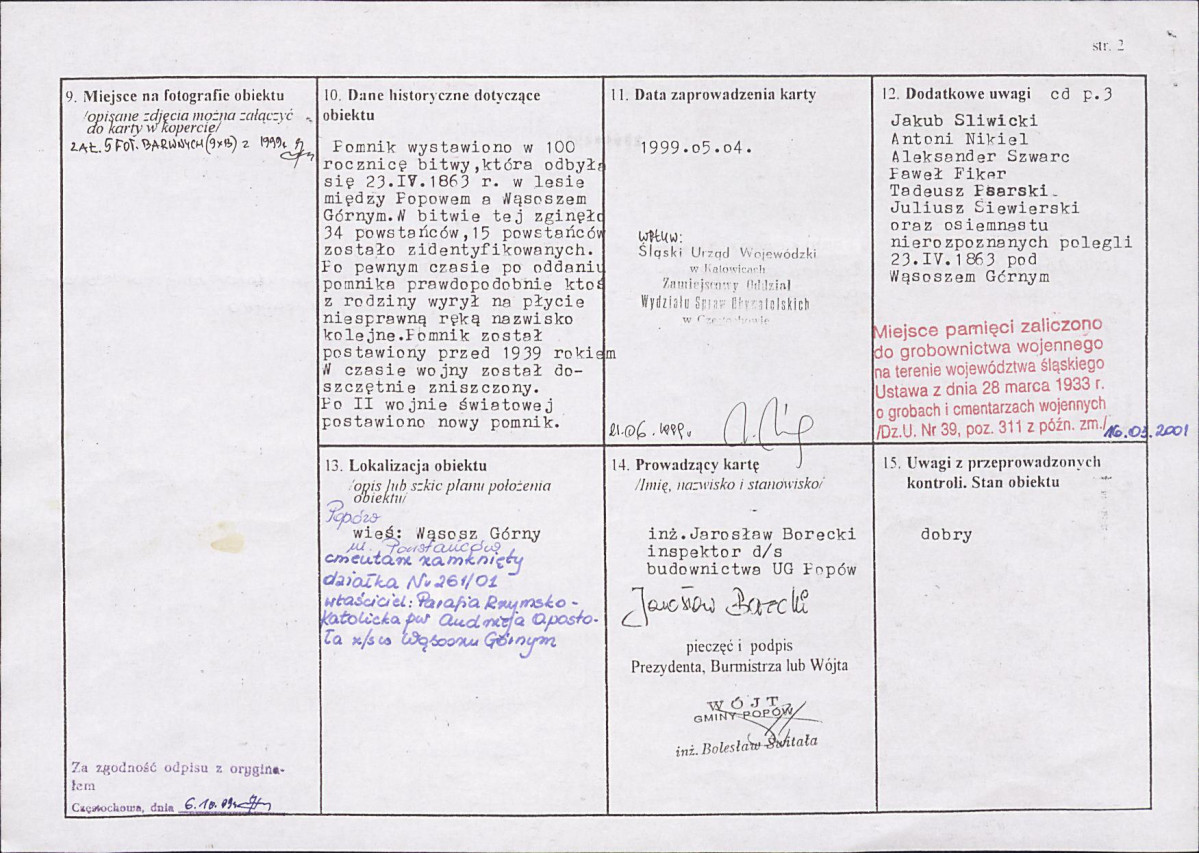 str. 2
9. Miejsce na fotografie obiektu
/opisane zdjęcia można załączyć
do karty w kopercie/
ZAŁ. 5 FOT. BARWNYCH (9x13) z 1999r.
10. Dane historyczne dotyczące
obiektu
Pomnik wystawiono w 100
rocznicę bitwy,która odbyła
się 23.IV.1863 r. w lesie
między Popowem a Wąsoszem
Górnym.W bitwie tej zginęło
34 powstańców,15 powstańców
zostało zidentyfikowanych.
Po pewnym czasie po oddaniu
pomnika prawdopodobnie ktoś
z rodziny wyrył na płycie
niesprawną ręką nazwisko
kolejne.Pomnik został
postawiony przed 1939 rokiem
W czasie wojny został do-
szczętnie zniszczony.
Po II wojnie światowej
postawiono nowy pomnik.
11. Data zaprowadzenia karty
1999.o5.o4.
WPŁYW:
Śląski Urząd Wojewódzki
w Katowicach
Zamiejscowy Oddział
Wydziału Spraw Obywatelskich
w Częstochowie
21.06.1999r.
12. Dodatkowe uwagi cd p.3
Jakub Sliwicki
Antoni Nikiel
Aleksander Szwarc
Paweł Fiker
Tadeusz Psarski
Juliusz Siewierski
oraz osiemnastu
nierozpoznanych polegli
23.IV.1863 pod
Wąsoszem Górnym
Miejsce pamięci zaliczono
do grobownictwa wojennego
na terenie województwa śląskiego
Ustawa z dnia 28 marca 1933 r.
o grobach i cmentarzach wojennych
/Dz.U. Nr 39, poz. 311 z późn. zm./ 16.03.2001
13. Lokalizacja obiektu
/opis lub szkic planu położenia
obiektu/
Popów
wieś: Wąsosz Górny
ul. Powstańców
cmentarz zamknięty
działka Nr 261/01
właściciel: Parafia Rzymsko-
Katolicka pw Andrzeja Aposto-
ła z/s w Wąsoszu Górnym
14. Prowadzący kartę
/Imię, nazwisko i stanowisko/
inż.Jarosław Borecki
inspektor d/s
budownictwa UG Popów
Jarosław Borecki
pieczęć i podpis
Prezydenta, Burmistrza lub Wójta
WÓJT
GMINY POPÓW
inż. Bolesław Świtała
15. Uwagi z przeprowadzonych
kontroli. Stan obiektu
dobry
Za zgodność odpisu z orygina-
łem
Częstochowa, dnia 6.10.09r.